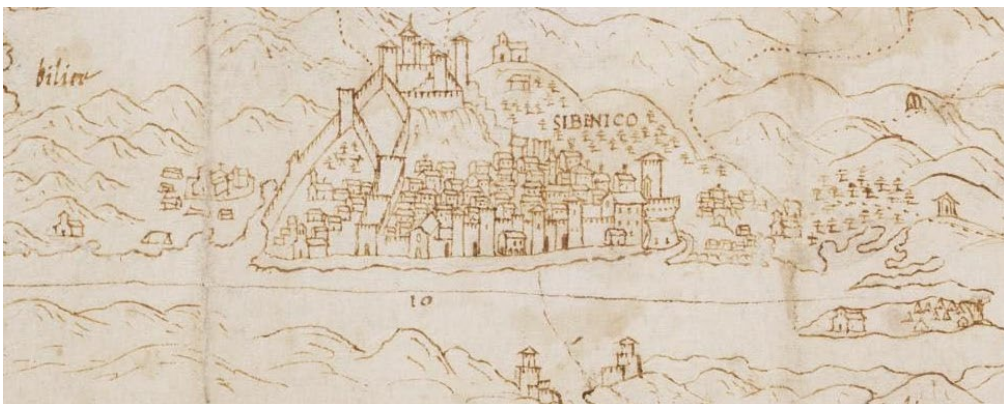 bilice
SIBENICO
10